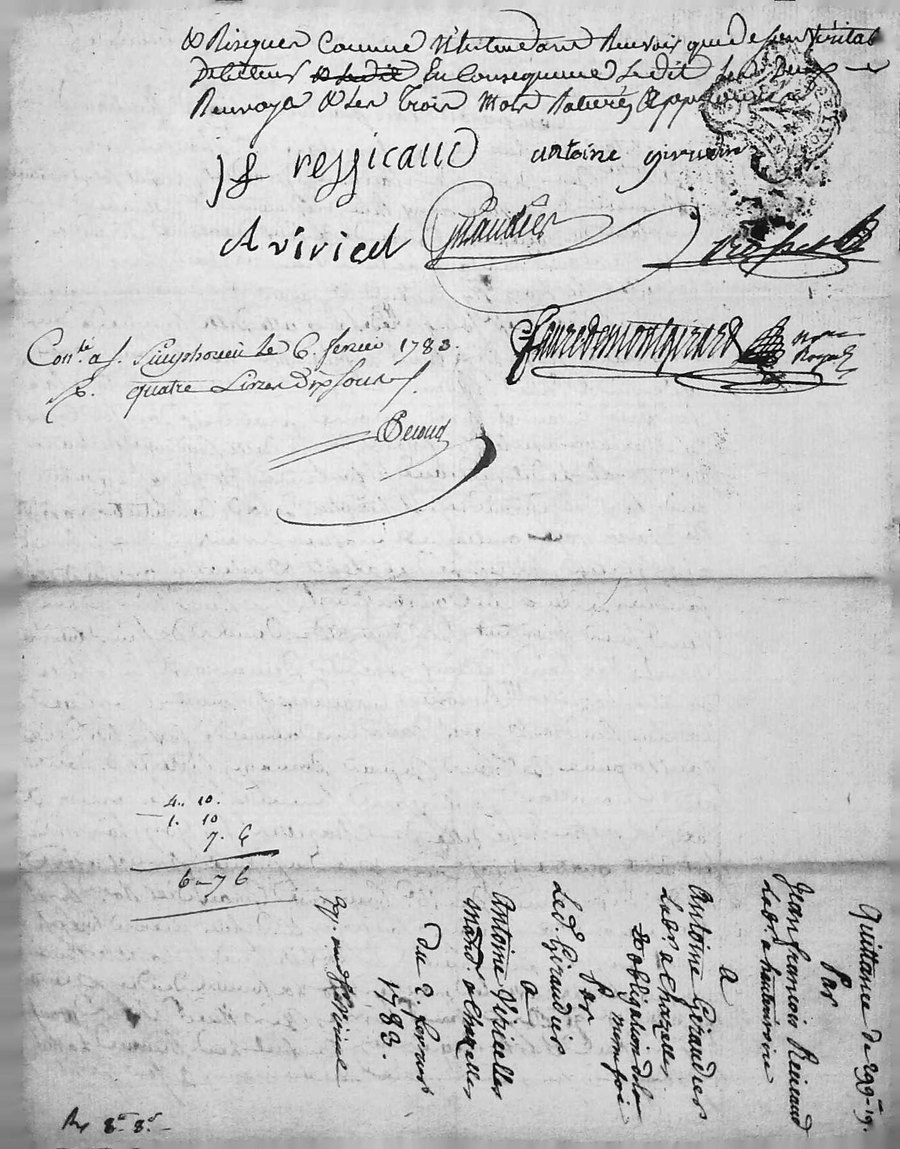 & Risques Comme N'Entendant Recevoir que de son Véritab
Debiteur En Consequence Ledit
Renvoys & Les Trois Mots Raturés Approuvés
J f ressicaud
antoine
A viricel
Giraudier
fauredemontgirard
nore
Royal
Conle. a S. Simphorien le 6. fevrier 1783.
R. quatre Livres dix sous
4.. 10.
1. 10
7. 6
6 - 7 6
Quittance de 299-19.
Par
Jean francois Ressicaud
Labr. a hauterivoire
A
Antoine Giraudier
Labr. a Chazelles
& obligation de la
mem foi
Par
Led. Giraudier
A
Antoine Viricelles
Mard. a Chazelles
Du 2 fevrier
1783.